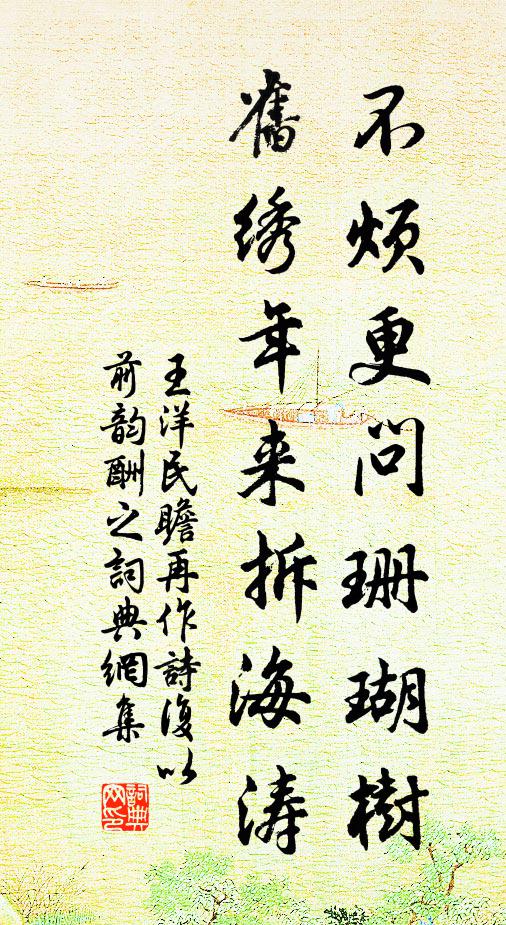 不烦更问珊瑚樹
舊绣年来拆海涛
王洋民瞻再作詩復以
前韵酬之词典網集
詞典网印